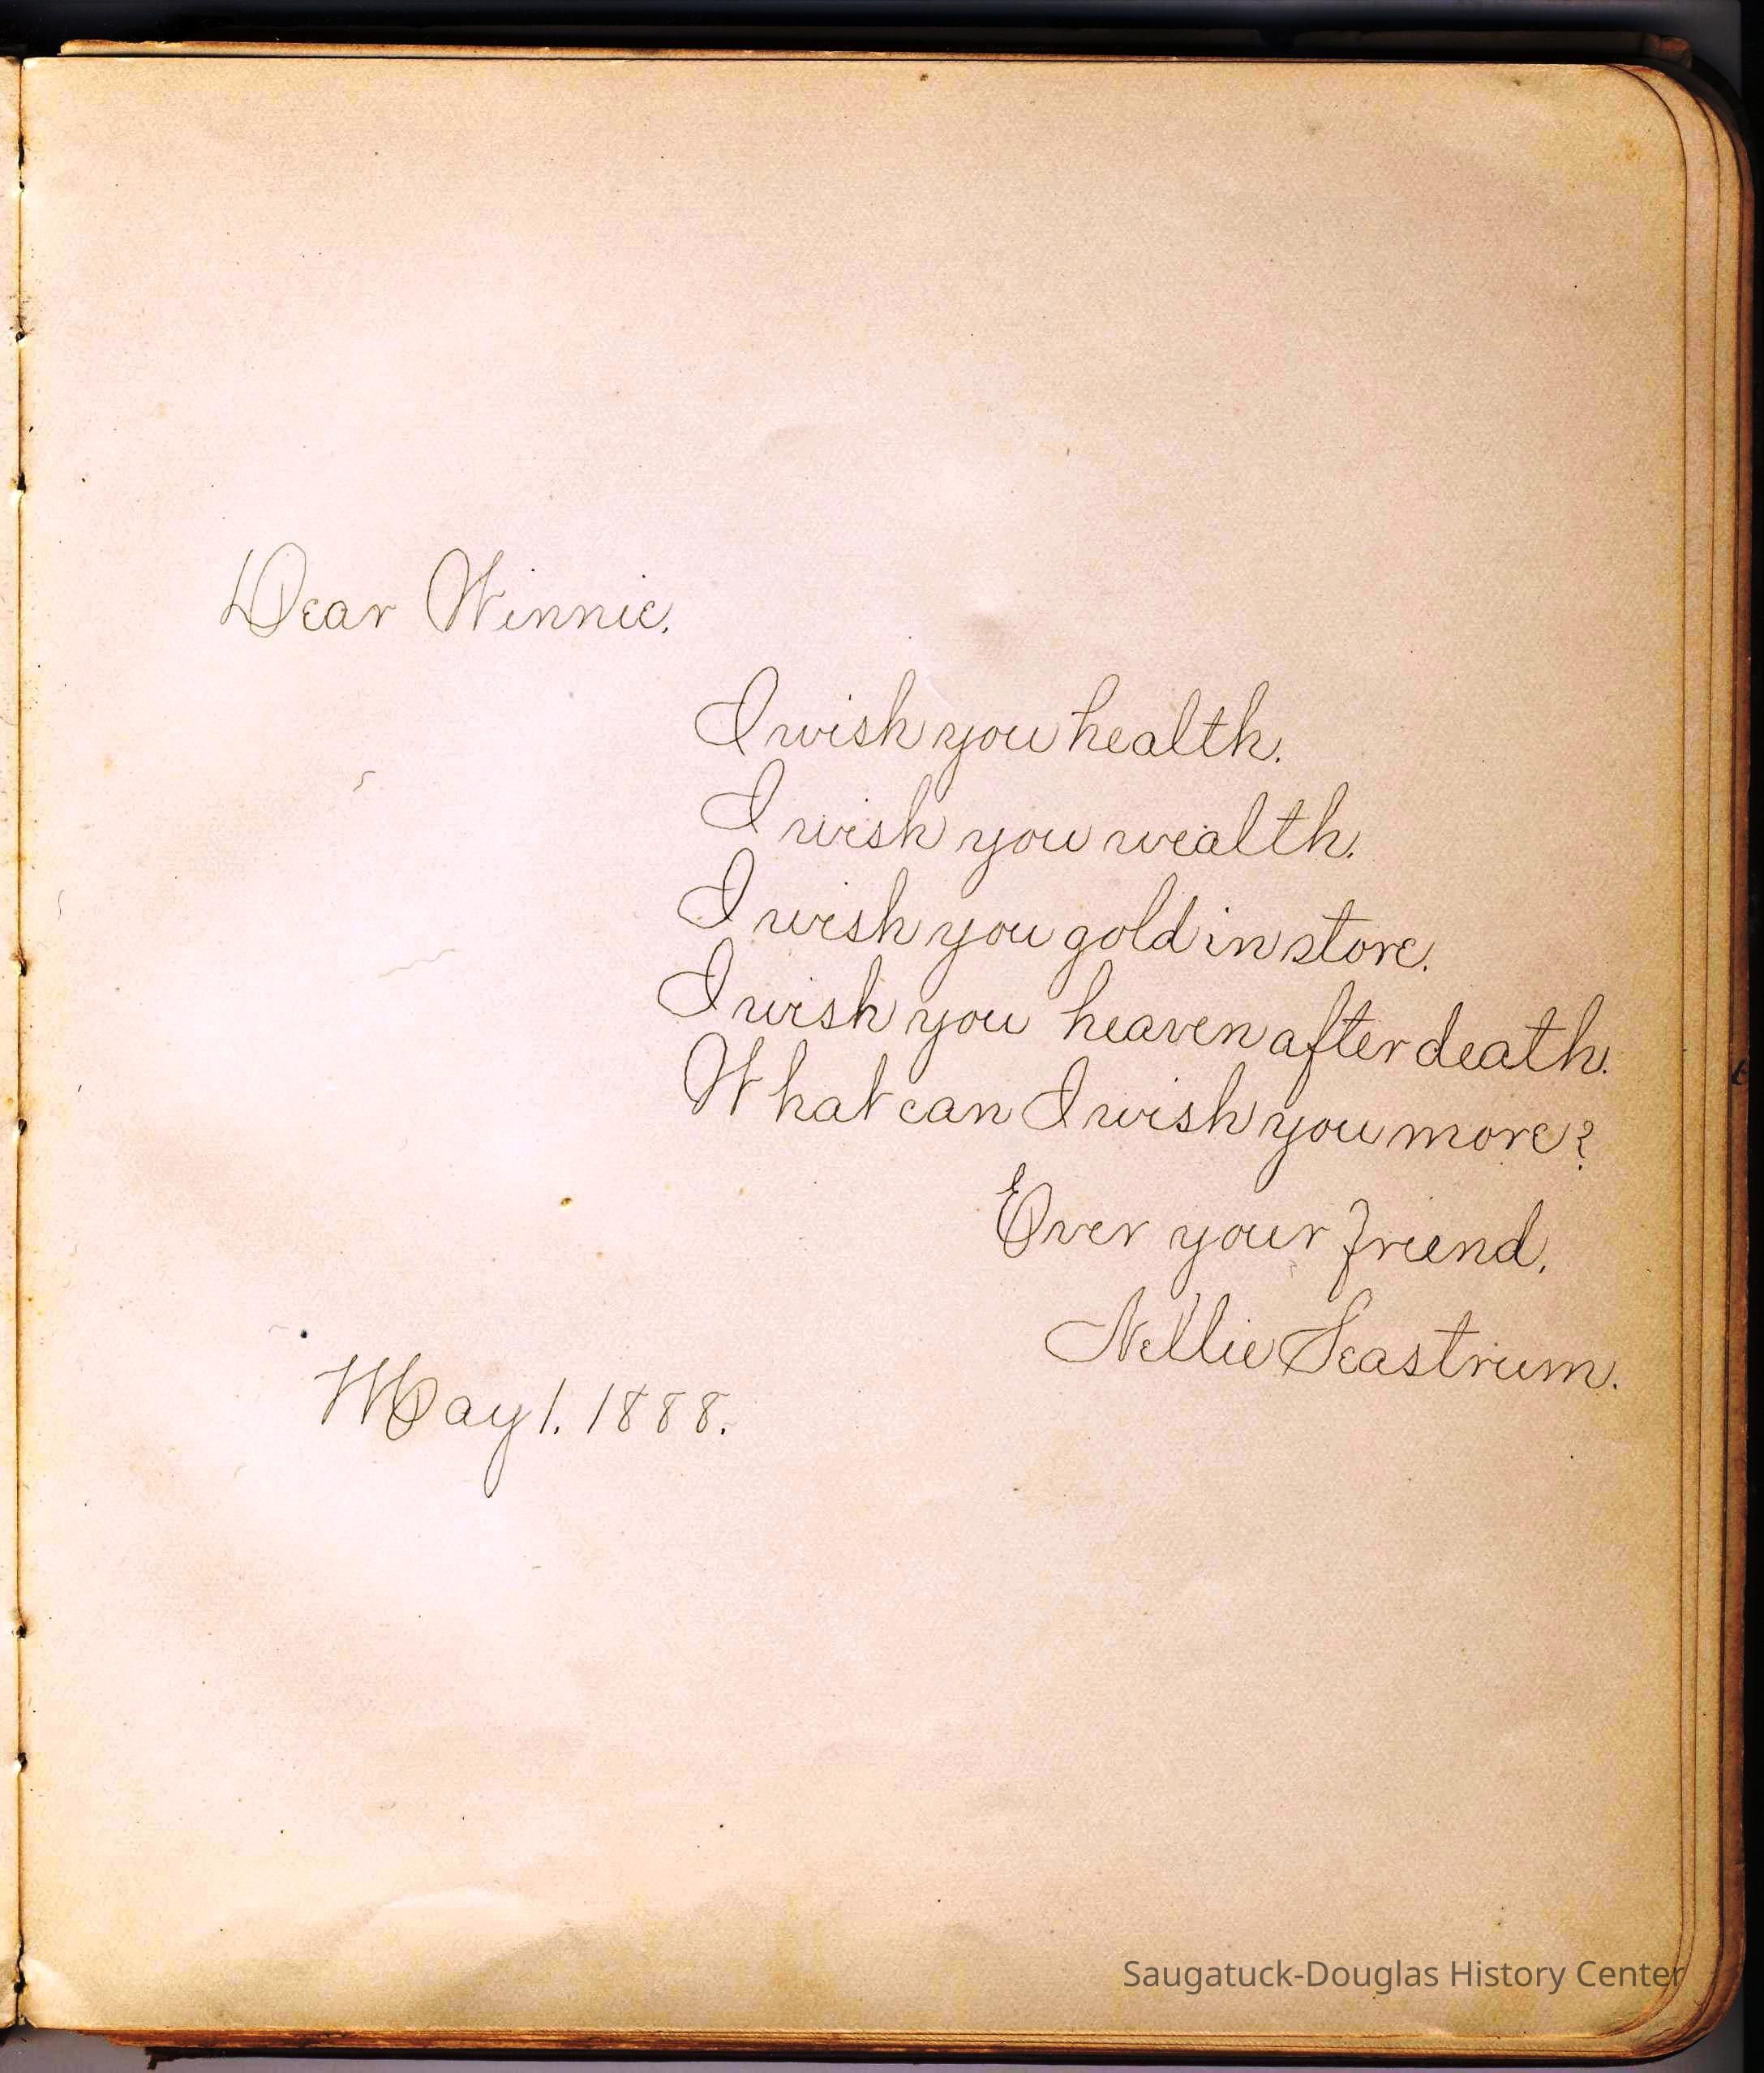 Dear Winnie.
I wish you health.
I wish you wealth.
I wish you gold in store.
I wish you heaven after death.
What can I wish you more?
Ever your friend,
Nellie Seastrum.
May 1. 1888.
Saugatuck-Douglas History Center